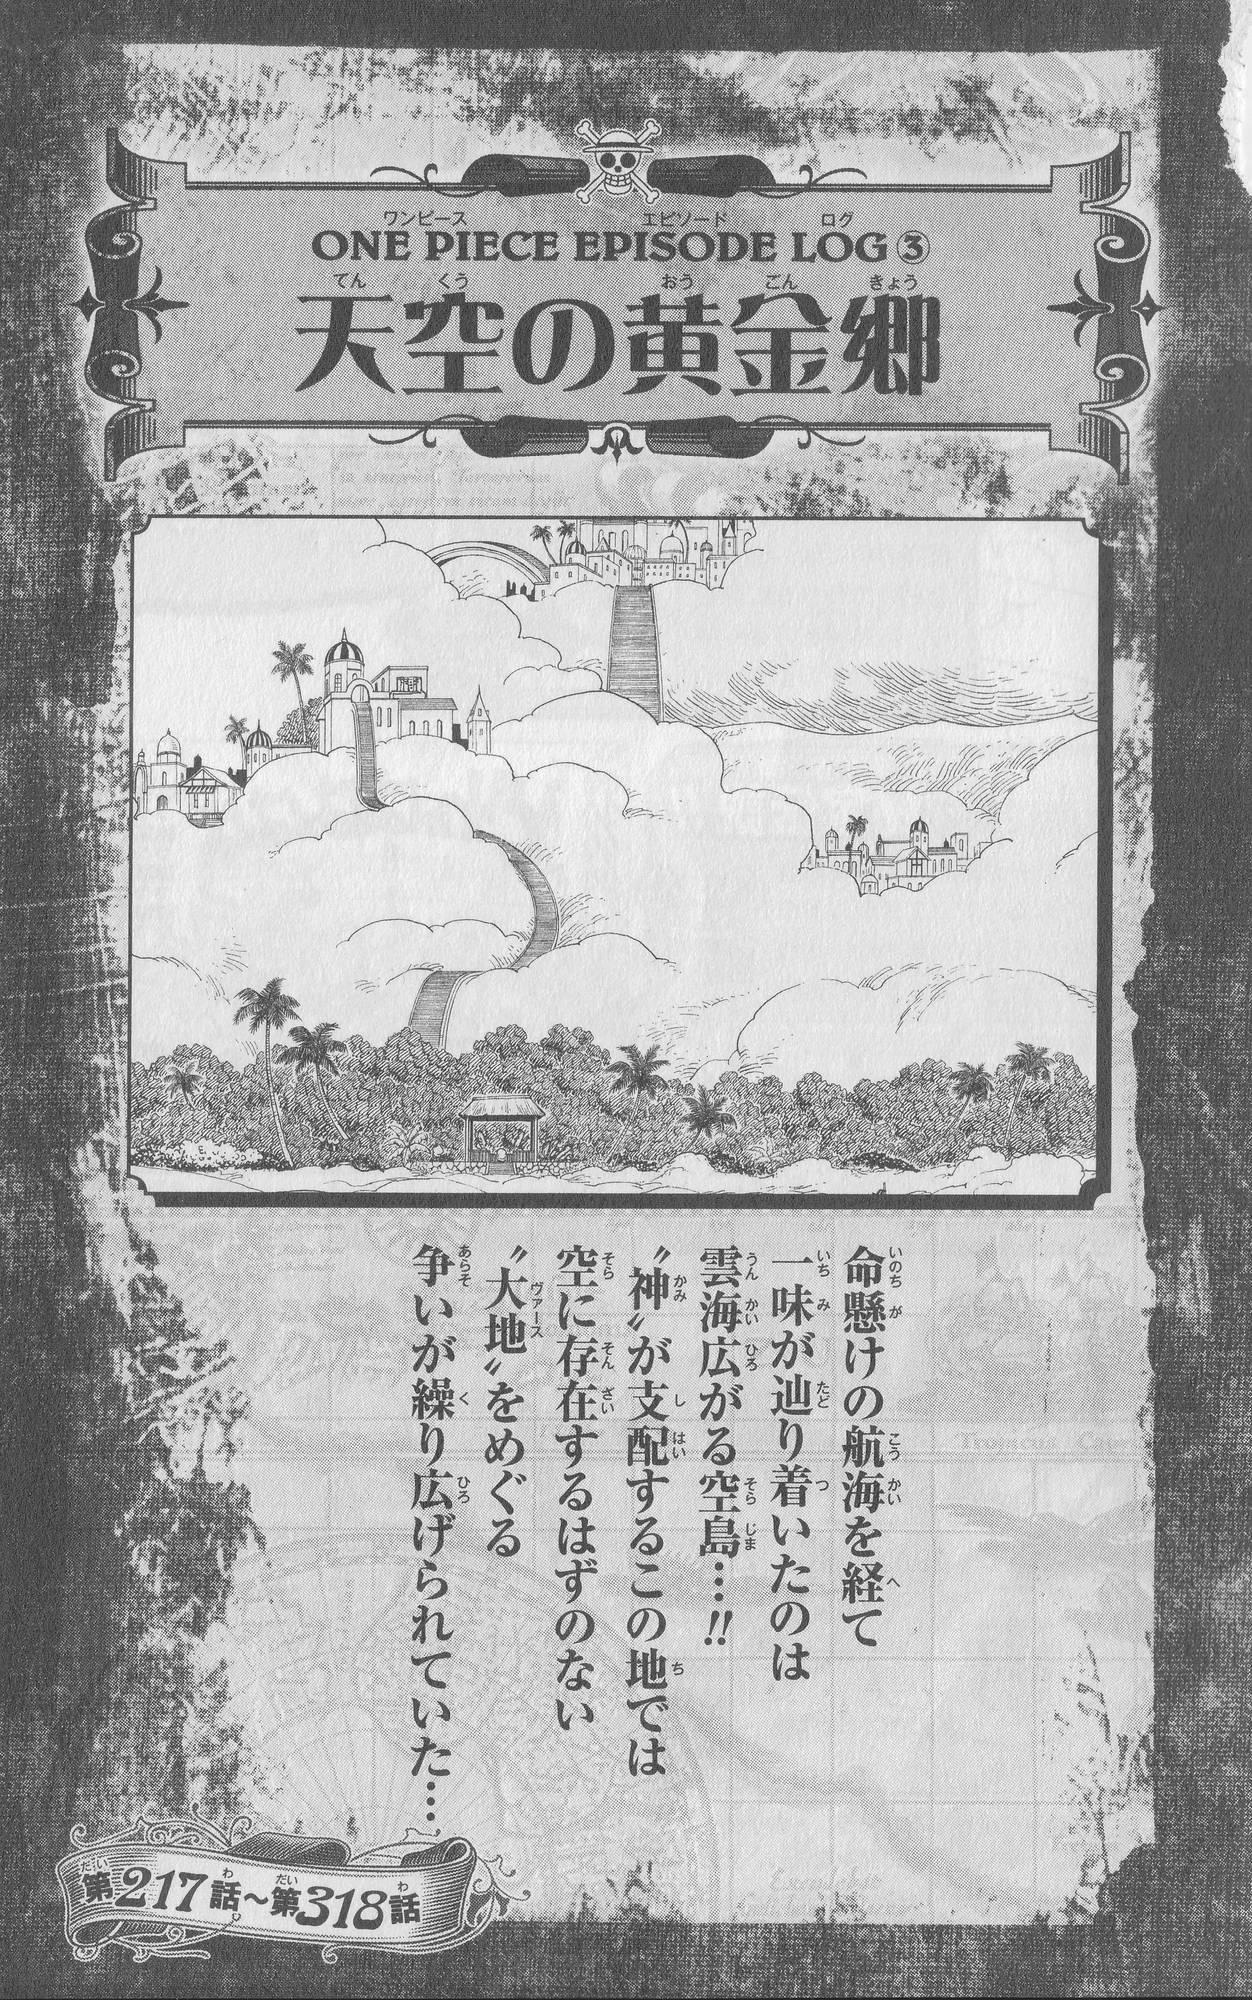 ONE PIECE EPISODE LOG③
天空の黄金郷
命懸けの航海を経て
一味が辿り着いたのは
雲海広がる空島…!!
〝神〟が支配するこの地では
空に存在するはずのない
〝大地〟をめぐる
争いが繰り広げられていた…
第217話~第318話